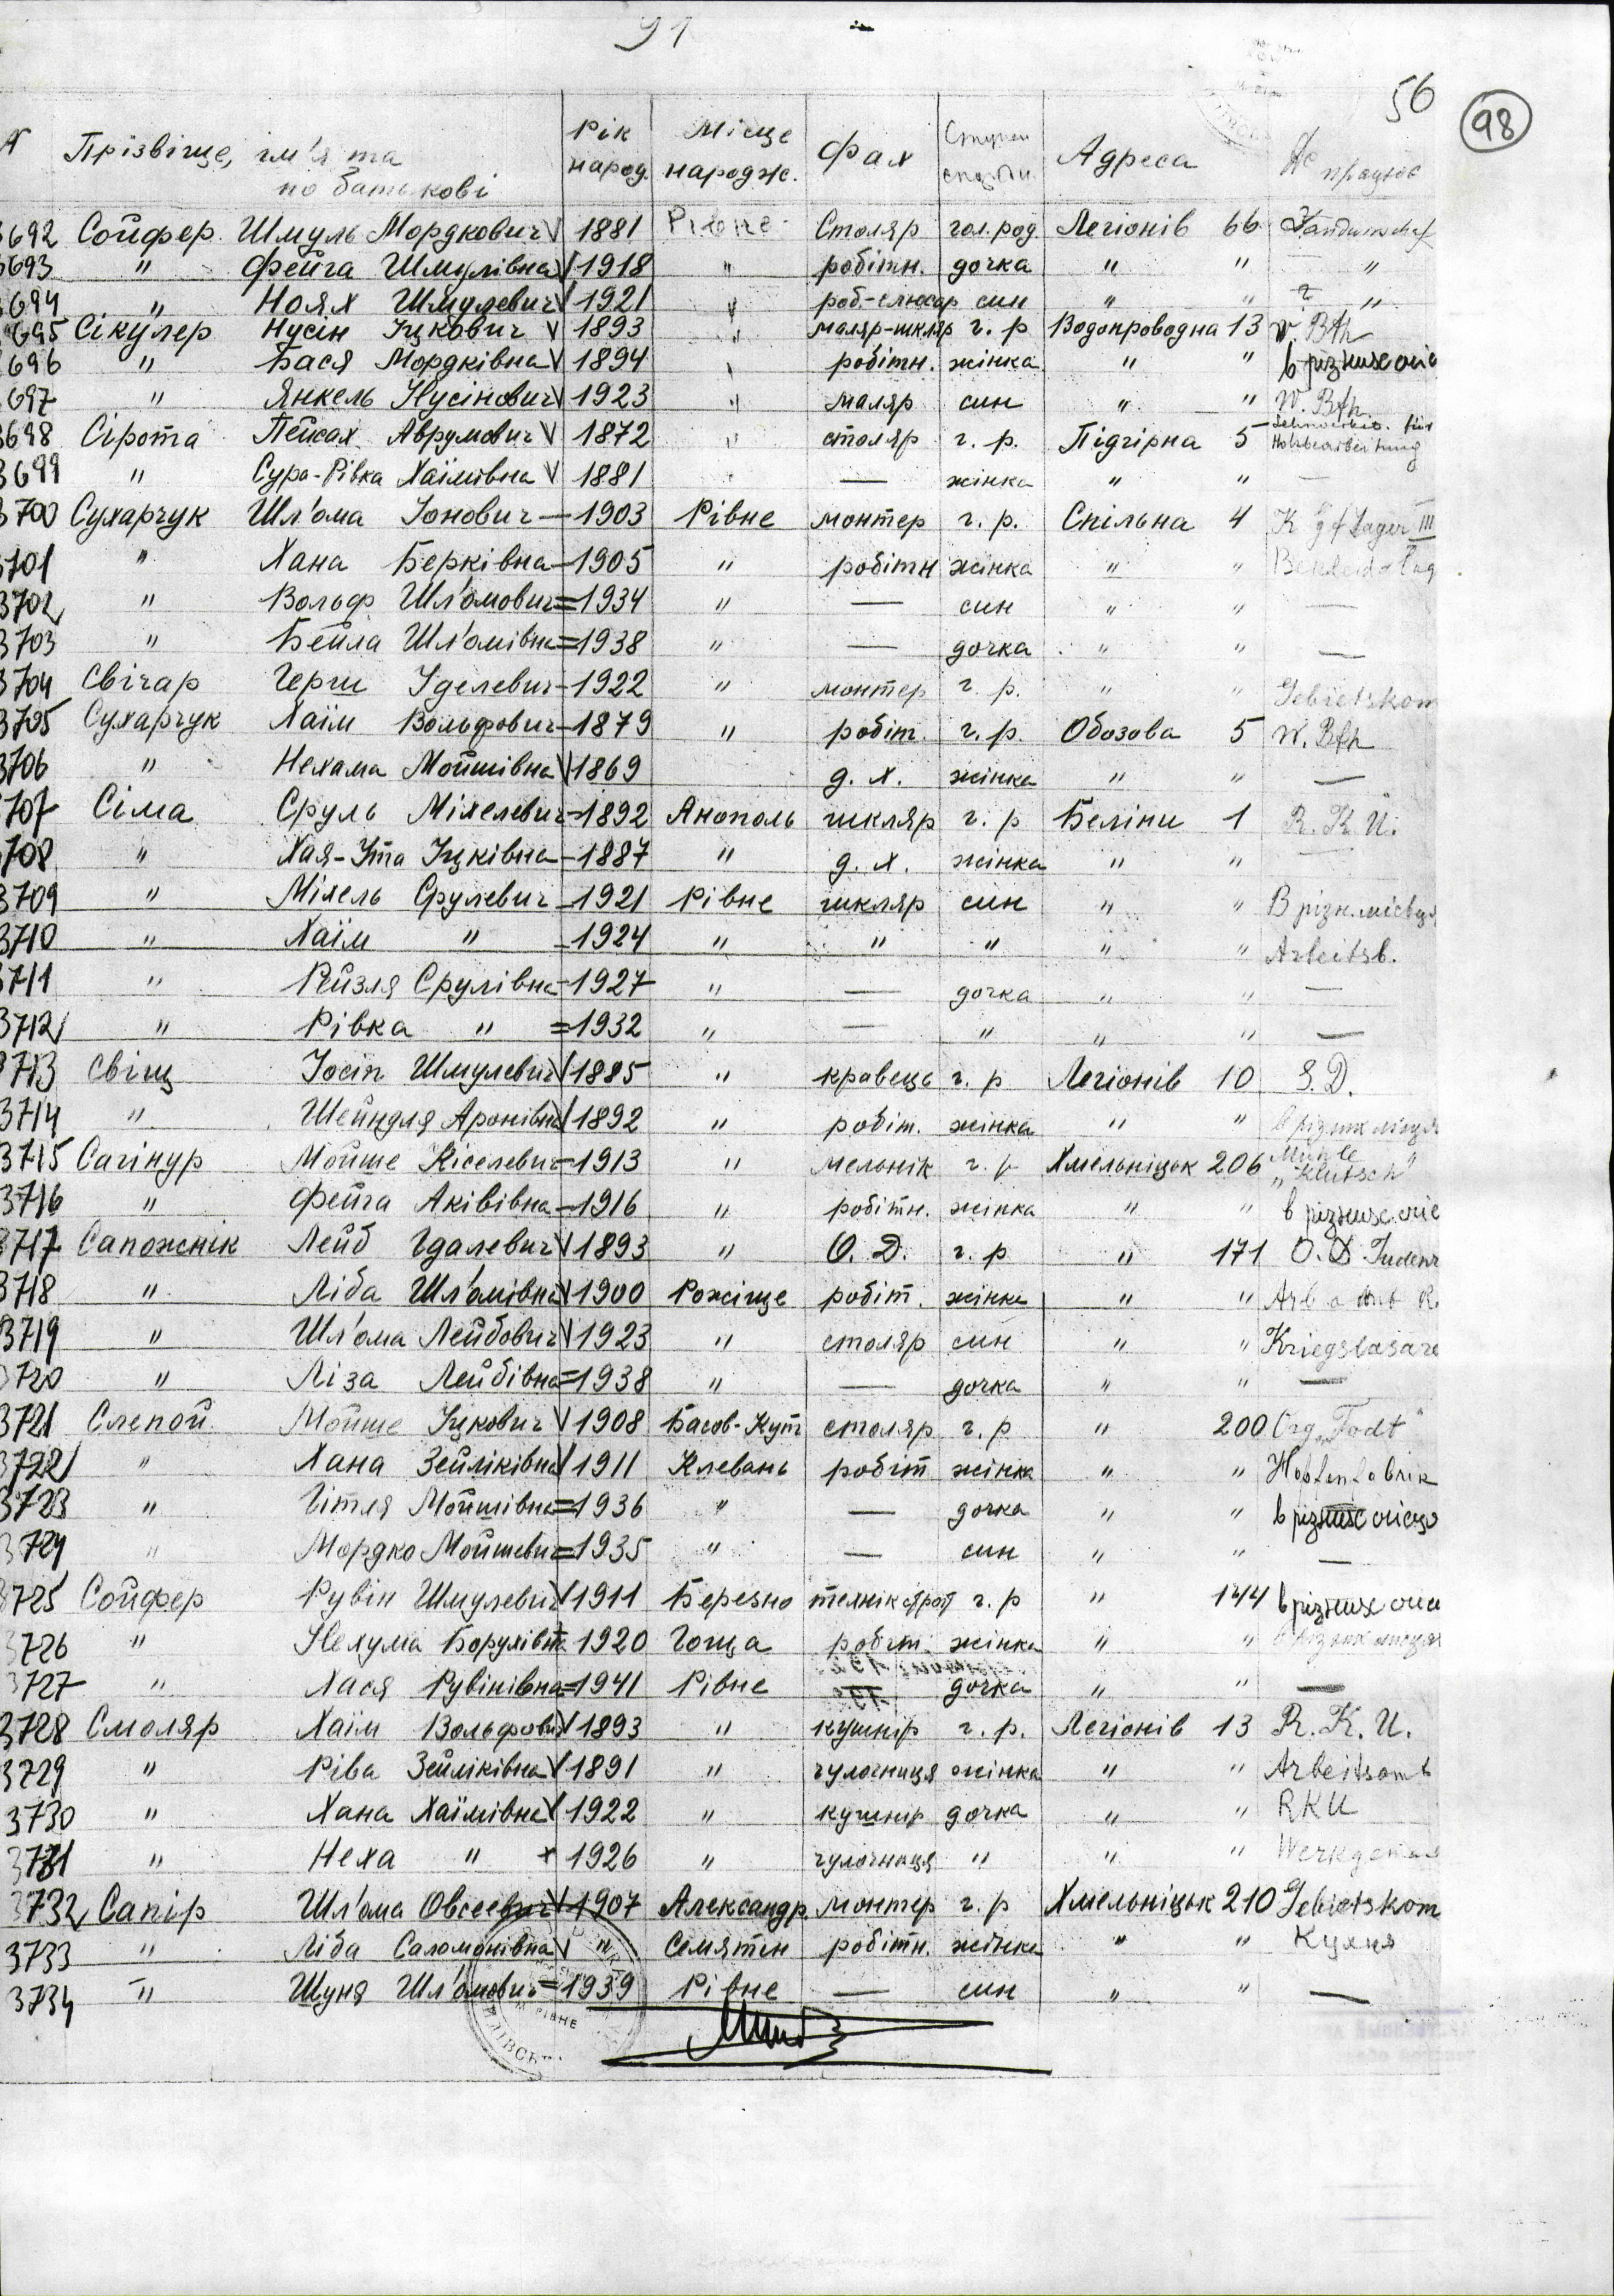 91
56
98
№ Прізвіще, ім'я та по батькові Рік народ. Місце народж. Фах Адреса Де працює
3692 Сойфер Шмуль Мордкович V 1881 Рівне Столяр гол.род. Легіонів 66
3693 " Фейга Шмулівна V 1918 " робітн. дочка " " "
3694 " Ноях Шмулевич V 1921 " роб.-слюсар син " " "
3695 Сікулер Нусін Іцкович V 1893 " маляр-шкляр г. р Водопроводна 13 W. Bfh
3696 " Бася Мордківна V 1894 " робітн. жінка " " в різних
3697 " Янкель Нусінович V 1923 " маляр син " " W. Bfh.
3698 Сірота Пейсах Аврумович V 1872 " столяр г. р. Підгірна 5 für Holzbearbeitung
3699 " Сура-Рівка Хаїмівна V 1881 " — жінка " " —
3700 Сухарчук Шльома Іонович — 1903 Рівне монтер г. р. Спільна 4 K gf Lager III
3701 " Хана Берківна — 1905 " робітн жінка " "
3702 " Вольф Шльомович = 1934 " — син " " —
3703 " Бейла Шльомівна = 1938 " — дочка " " —
3704 Свічар Герш Уделевич — 1922 " монтер г. р. " " Gebietskom
3705 Сухарчук Хаїм Вольфович — 1879 " робіт. г. р. Обозова 5 W. Bfh
3706 " Нехама Мойшівна V 1869 д. х. жінка " " —
3707 Сіма Сруль Міхелевич — 1892 Анополь шкляр г. р Беліни 1 R. K. U.
3708 " Хая-Ута Іцківна — 1887 " д. х. жінка " " —
3709 " Міхель Срулевич — 1921 Рівне шкляр син " " В різн. місцях
3710 " Хаїм " — 1924 " " " " " Arbeitsb.
3711 " Рейзля Срулівна — 1927 " — дочка " " —
3712 " Рівка " = 1932 " — " " " —
3713 Свіщ Іосіп Шмулевич V 1885 " кравець г. р Легіонів 10 S. D.
3714 " Шейндля Аронівна V 1892 " робіт. жінка " " в різних місця
3715 Сагінур Мойше Кіселевич — 1913 " мельнік г. р Хмельніцьк 206 Mühle „Klutsch"
3716 " Фейга Аківівна — 1916 " робітн. жінка " " в різних
3717 Сапожнік Лейб Гдалевич V 1893 " О. Д. г. р " 171 O. D. Judenr
3718 " Ліба Шльомівна V 1900 Рожіще робіт. жінка " "
3719 " Шльома Лейбович V 1923 " столяр син " " Kriegslasare
3720 " Ліза Лейбівна = 1938 " — дочка " " —
3721 Слепой Мойше Іцкович V 1908 Басов-Кут столяр г. р " 200 Org. „Todt"
3722 " Хана Зейліківна V 1911 Клевань робіт жінка " " Hopfenfabrik
3723 " Гітля Мойшівна = 1936 " — дочка " " в різних
3724 " Мордко Мойшевич = 1935 " — син " " —
3725 Сойфер Рувін Шмулевич V 1911 Березно г. р " 144 в різних
3726 " Нехума Борухівна 1920 Гоща робіт. жінка " " в різних місцях
3727 " Хася Рувінівна = 1941 Рівне — дочка " " —
3728 Смоляр Хаїм Вольфович V 1893 " кушнір г. р. Легіонів 13 R. K. U.
3729 " Ріва Зейліківна V 1891 " чулочниця жінка " " Arbeitsamt
3730 " Хана Хаїмівна V 1922 " кушнір дочка " " RKU
3731 " Неха " + 1926 " чулочниця " " "
3732 Сапір Шльома Овсеевич V 1907 Александр. монтер г. р Хмельніцьк 210 Gebietskom
3733 " Ліба Саломонівна V " Семятин робітн. жінка " " Кухня
3734 " Шуня Шльомович = 1939 Рівне — син " " —